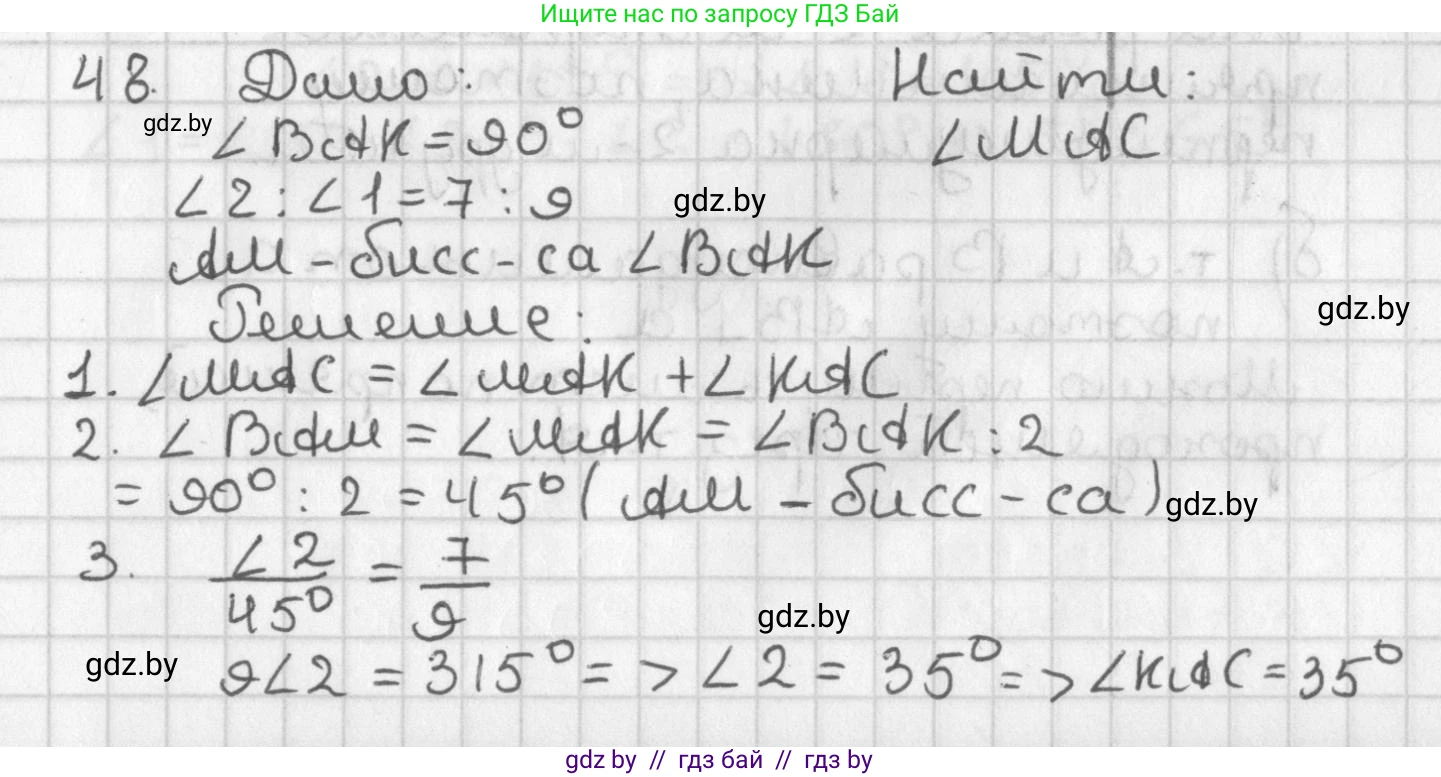 Ищите нас по запросу ГДЗ Бай
48. Дано: Найти:
gdz.by
∠BAK = 90° ∠MAC
∠2 : ∠1 = 7 : 9 gdz.by
AM - бисс-са ∠BAK
gdz.by
Решение:
1. ∠MAC = ∠MAK + ∠KAC
2. ∠BAM = ∠MAK = ∠BAK : 2
= 90° : 2 = 45° (AM - бисс-са) gdz.by
3. ∠2/45° = 7/9
gdz.by
gdz.by
9∠2 = 315° => ∠2 = 35° => ∠KAC = 35°
gdz by // гдз бай // гдз by